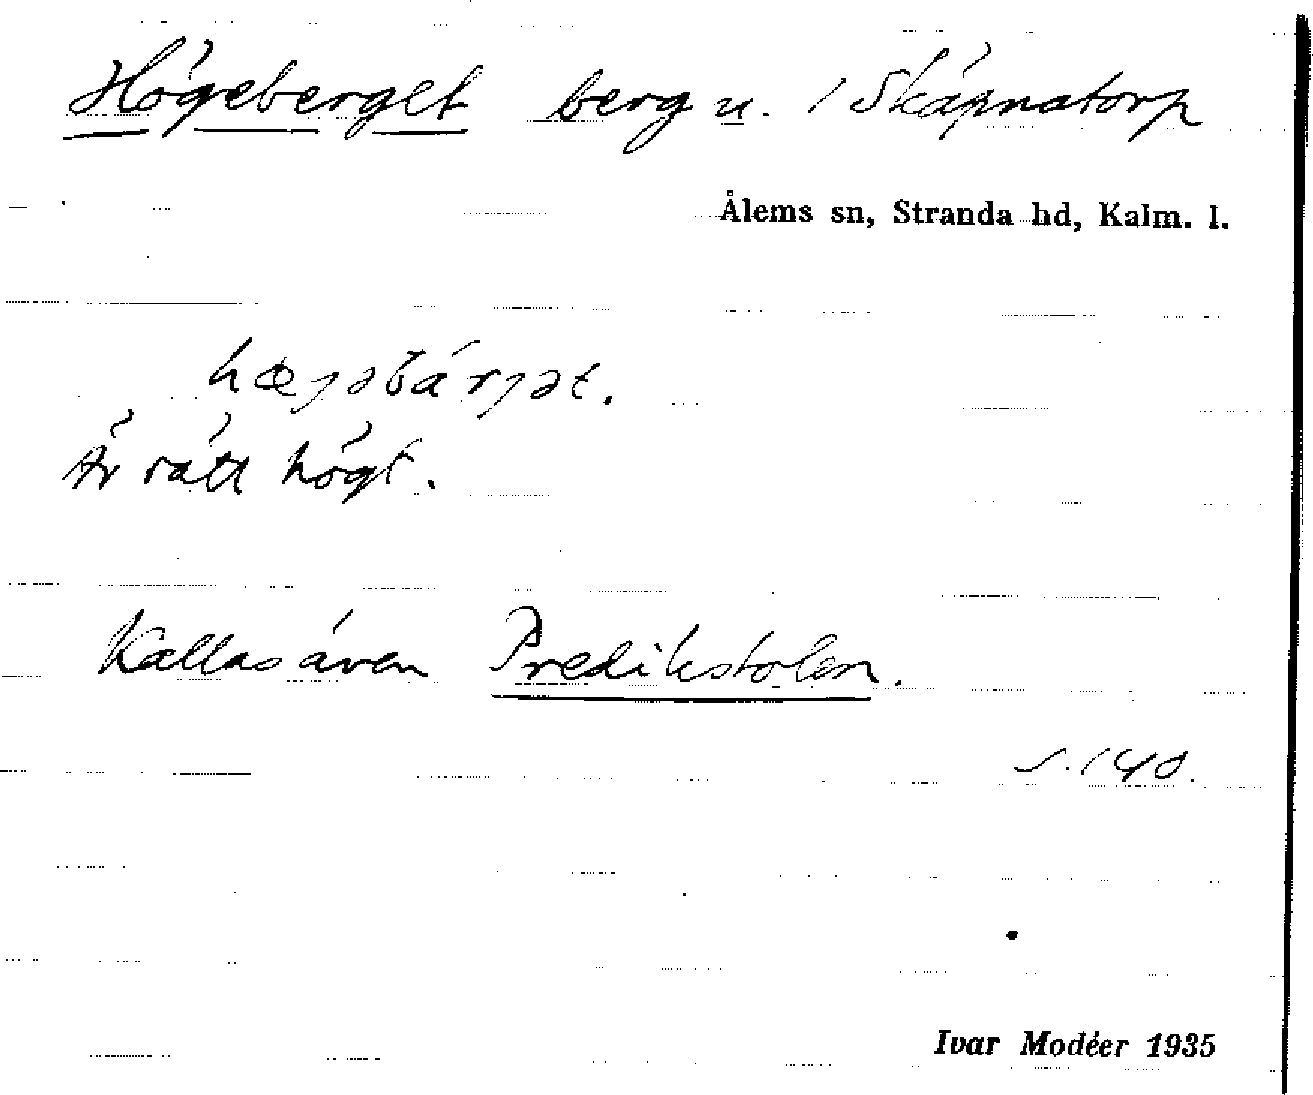 Högeberget berg u. / Skäpnatorp
Ålems sn, Stranda hd, Kalm. l.
hœjəbárjət.
Är rätt högt.
Kallas även Predikstolen.
s. 140.
Ivar Modéer 1935